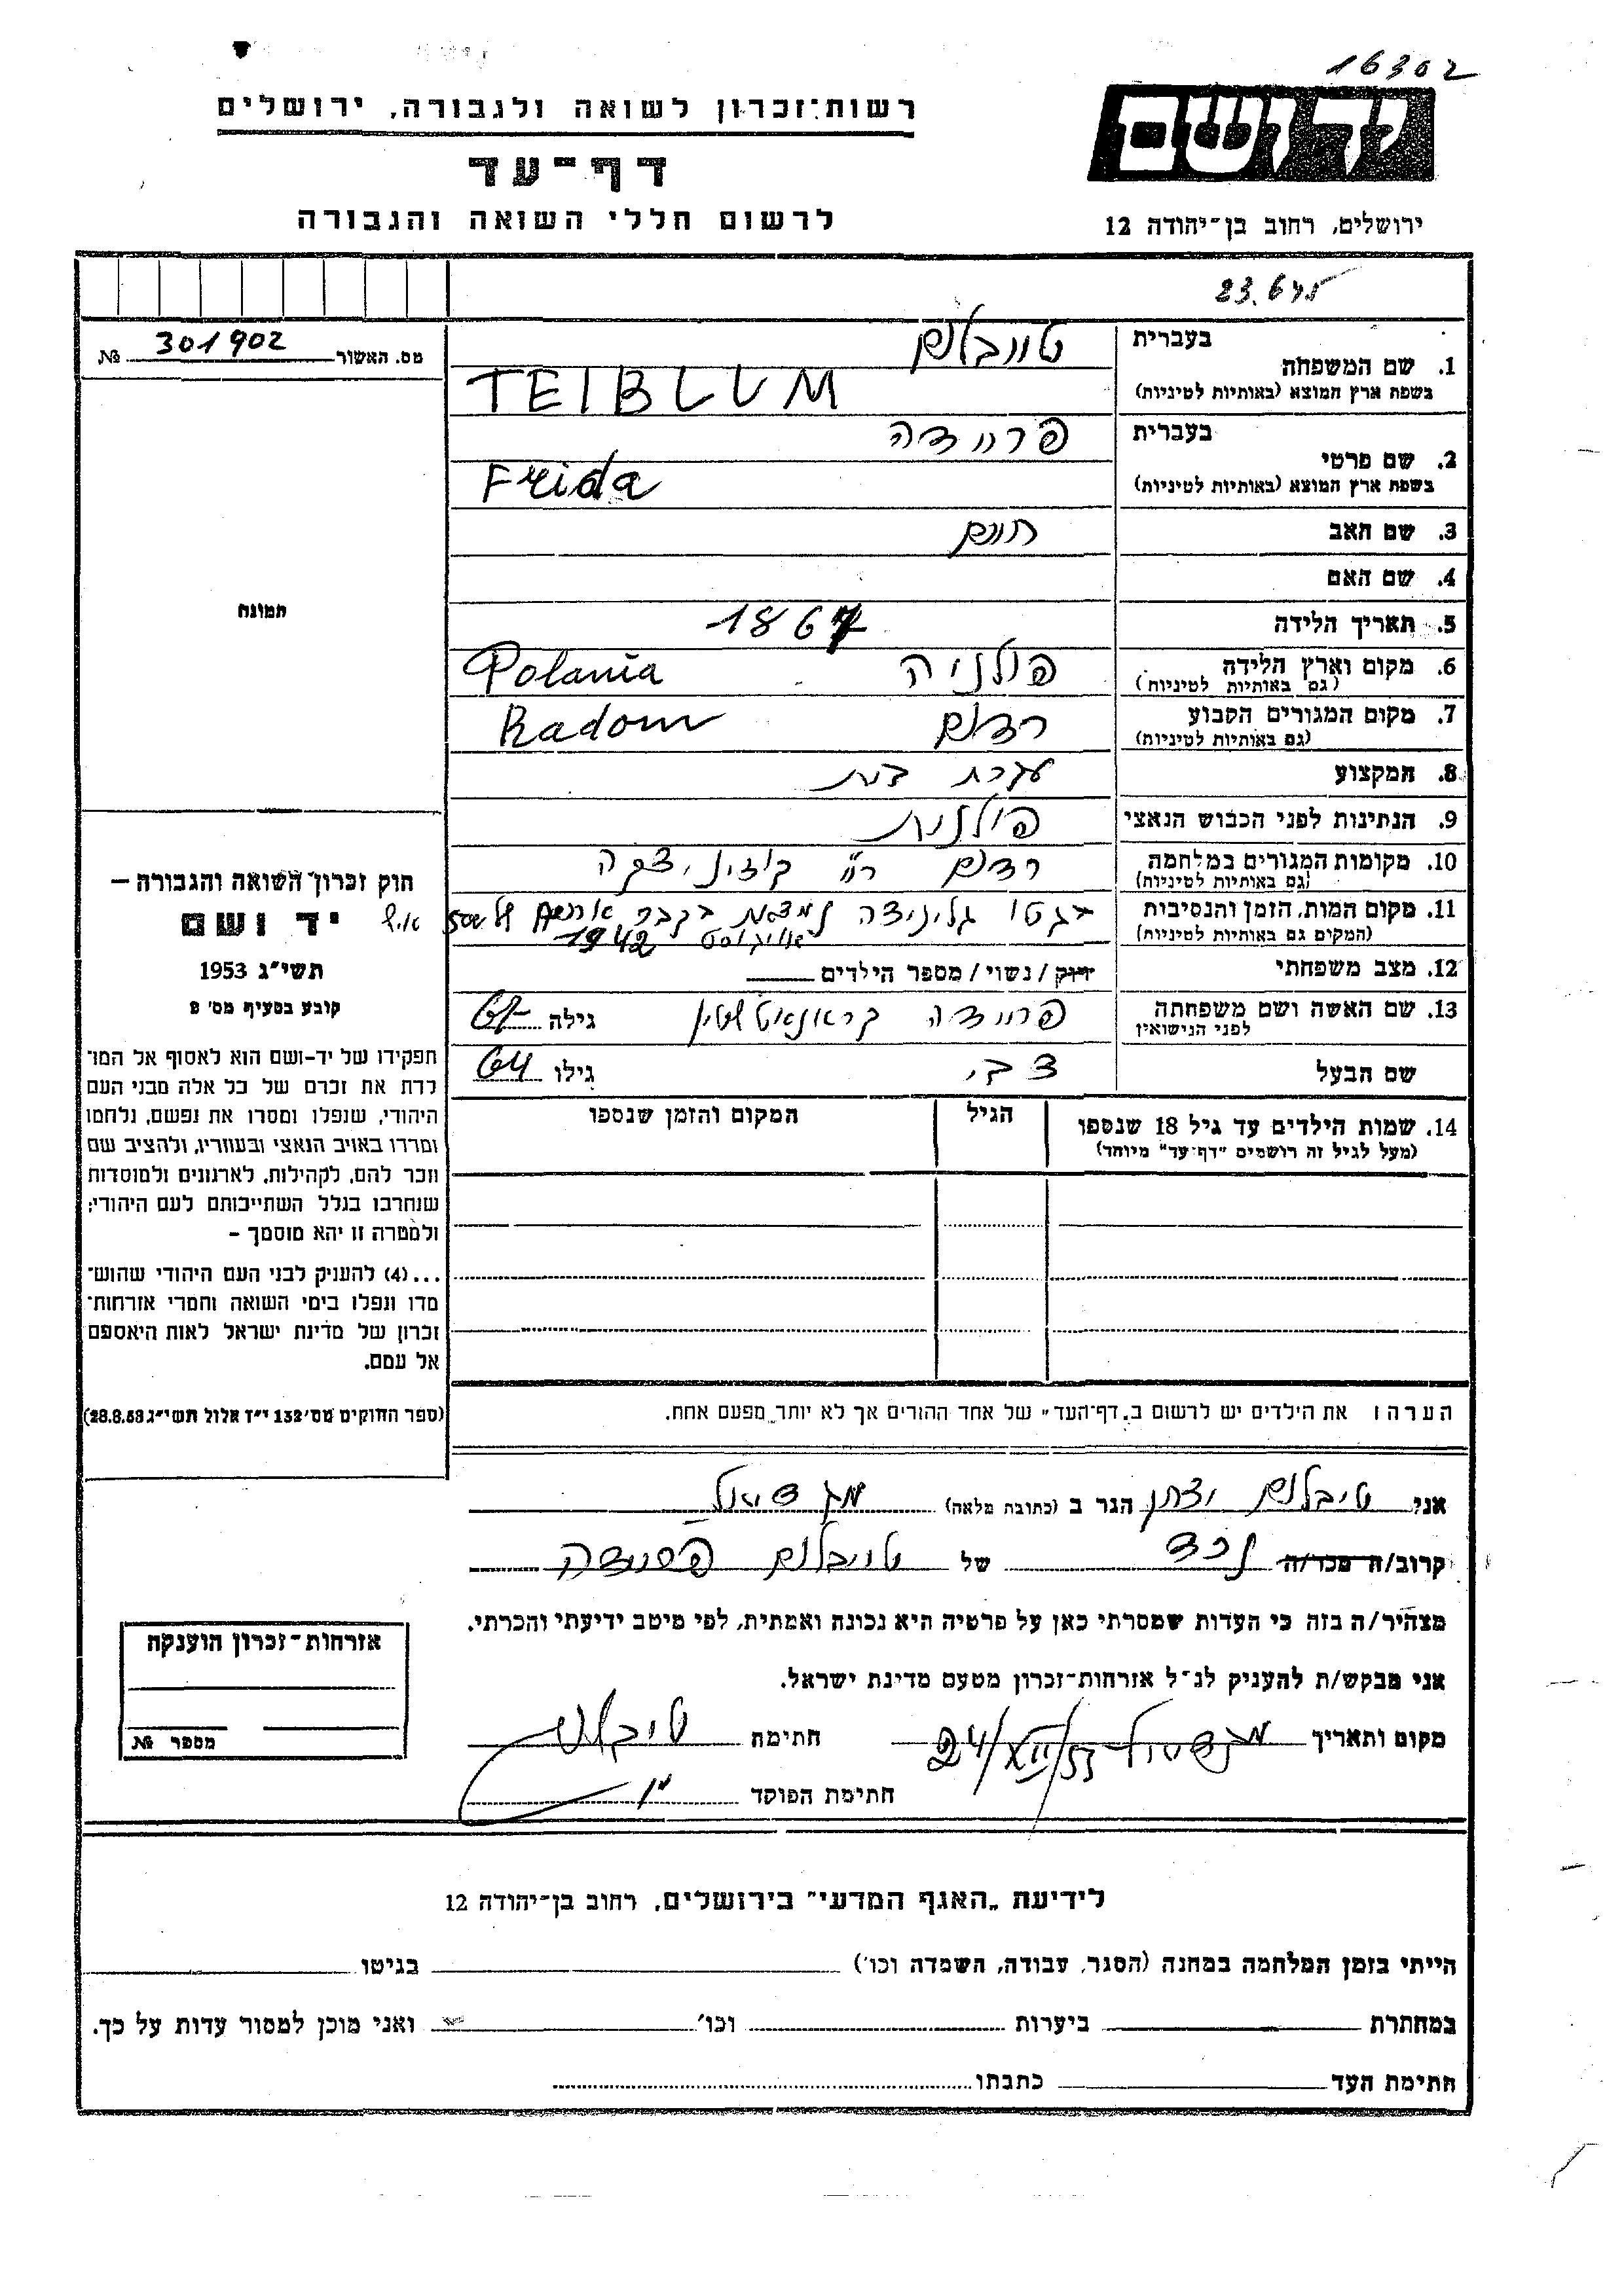 16302
יד ושם
רשות־זכרון לשואה ולגבורה, ירושלים
דף־עד
לרשום חללי השואה והגבורה
ירושלים, רחוב בן־יהודה 12
מס. האשור 301902 №
בעברית
1. שם המשפחה
בשפת ארץ המוצא (באותיות לטיניות)
טייבלום
TEIBLUM
בעברית
2. שם פרטי
בשפת ארץ המוצא (באותיות לטיניות)
פריידה
Freida
3. שם האב חיים
4. שם האם
5. תאריך הלידה 1867
6. מקום וארץ הלידה פולניה Polania
(גם באותיות לטיניות)
7. מקום המגורים הקבוע רדום Radom
(גם באותיות לטיניות)
8. המקצוע עקרת בית
9. הנתינות לפני הכבוש הנאצי פולנית
10. מקומות המגורים במלחמה רדום
(גם באותיות לטיניות)
11. מקום המות, הזמן והנסיבות בגטו גליניצה נמצאת בקבר של 500 איש
(המקום גם באותיות לטיניות) אויגוסט 1942
12. מצב משפחתי רווק / נשוי / מספר הילדים
13. שם האשה ושם משפחתה פריידה גילה 67
לפני הנישואין
שם הבעל צבי גילו 64
14. שמות הילדים עד גיל 18 שנספו הגיל המקום והזמן שנספו
(מעל לגיל זה רושמים "דף־עד" מיוחד)
הערה: את הילדים יש לרשום ב„דף־העד" של אחד ההורים אך לא יותר מפעם אחת.
תמונה
חוק זכרון השואה והגבורה –
יד ושם
תשי"ג 1953
קובע בסעיף מס' 2
תפקידו של יד־ושם הוא לאסוף אל המו־
לדת את זכרם של כל אלה מבני העם
היהודי, שנפלו ומסרו את נפשם, נלחמו
ומרדו באויב הנאצי ובעוזריו, ולהציב שם
וזכר להם, לקהילות, לארגונים ולמוסדות
שנחרבו בגלל השתייכותם לעם היהודי;
ולמטרה זו יהא מוסמך –
...(4) להעניק לבני העם היהודי שהוש־
מדו ונפלו בימי השואה והמרי אזרחות־
זכרון של מדינת ישראל לאות היאספם
אל עמם.
(ספר החוקים מס' 132 י"ז אלול תשי"ג 28.8.53)
אני טיבלום הגר ב (כתובת מלאה) מגדיאל
קרוב/ה מכר/ה נכד של טייבלום
מצהיר/ה בזה כי העדות שמסרתי כאן על פרטיה היא נכונה ואמתית, לפי מיטב ידיעתי והכרתי.
אני מבקש/ת להעניק לנ"ל אזרחות־זכרון מטעם מדינת ישראל.
מקום ותאריך מגדיאל 24/XII/55 חתימה טיבלום
חתימת הפוקד
אזרחות־זכרון הוענקה
מספר №
לידיעת „האגף המדעי" בירושלים, רחוב בן־יהודה 12
הייתי בזמן המלחמה במחנה (הסגר, עבודה, השמדה וכו') בגיטו
במחתרת ביערות וכו' ואני מוכן למסור עדות על כך.
חתימת העד כתבתו